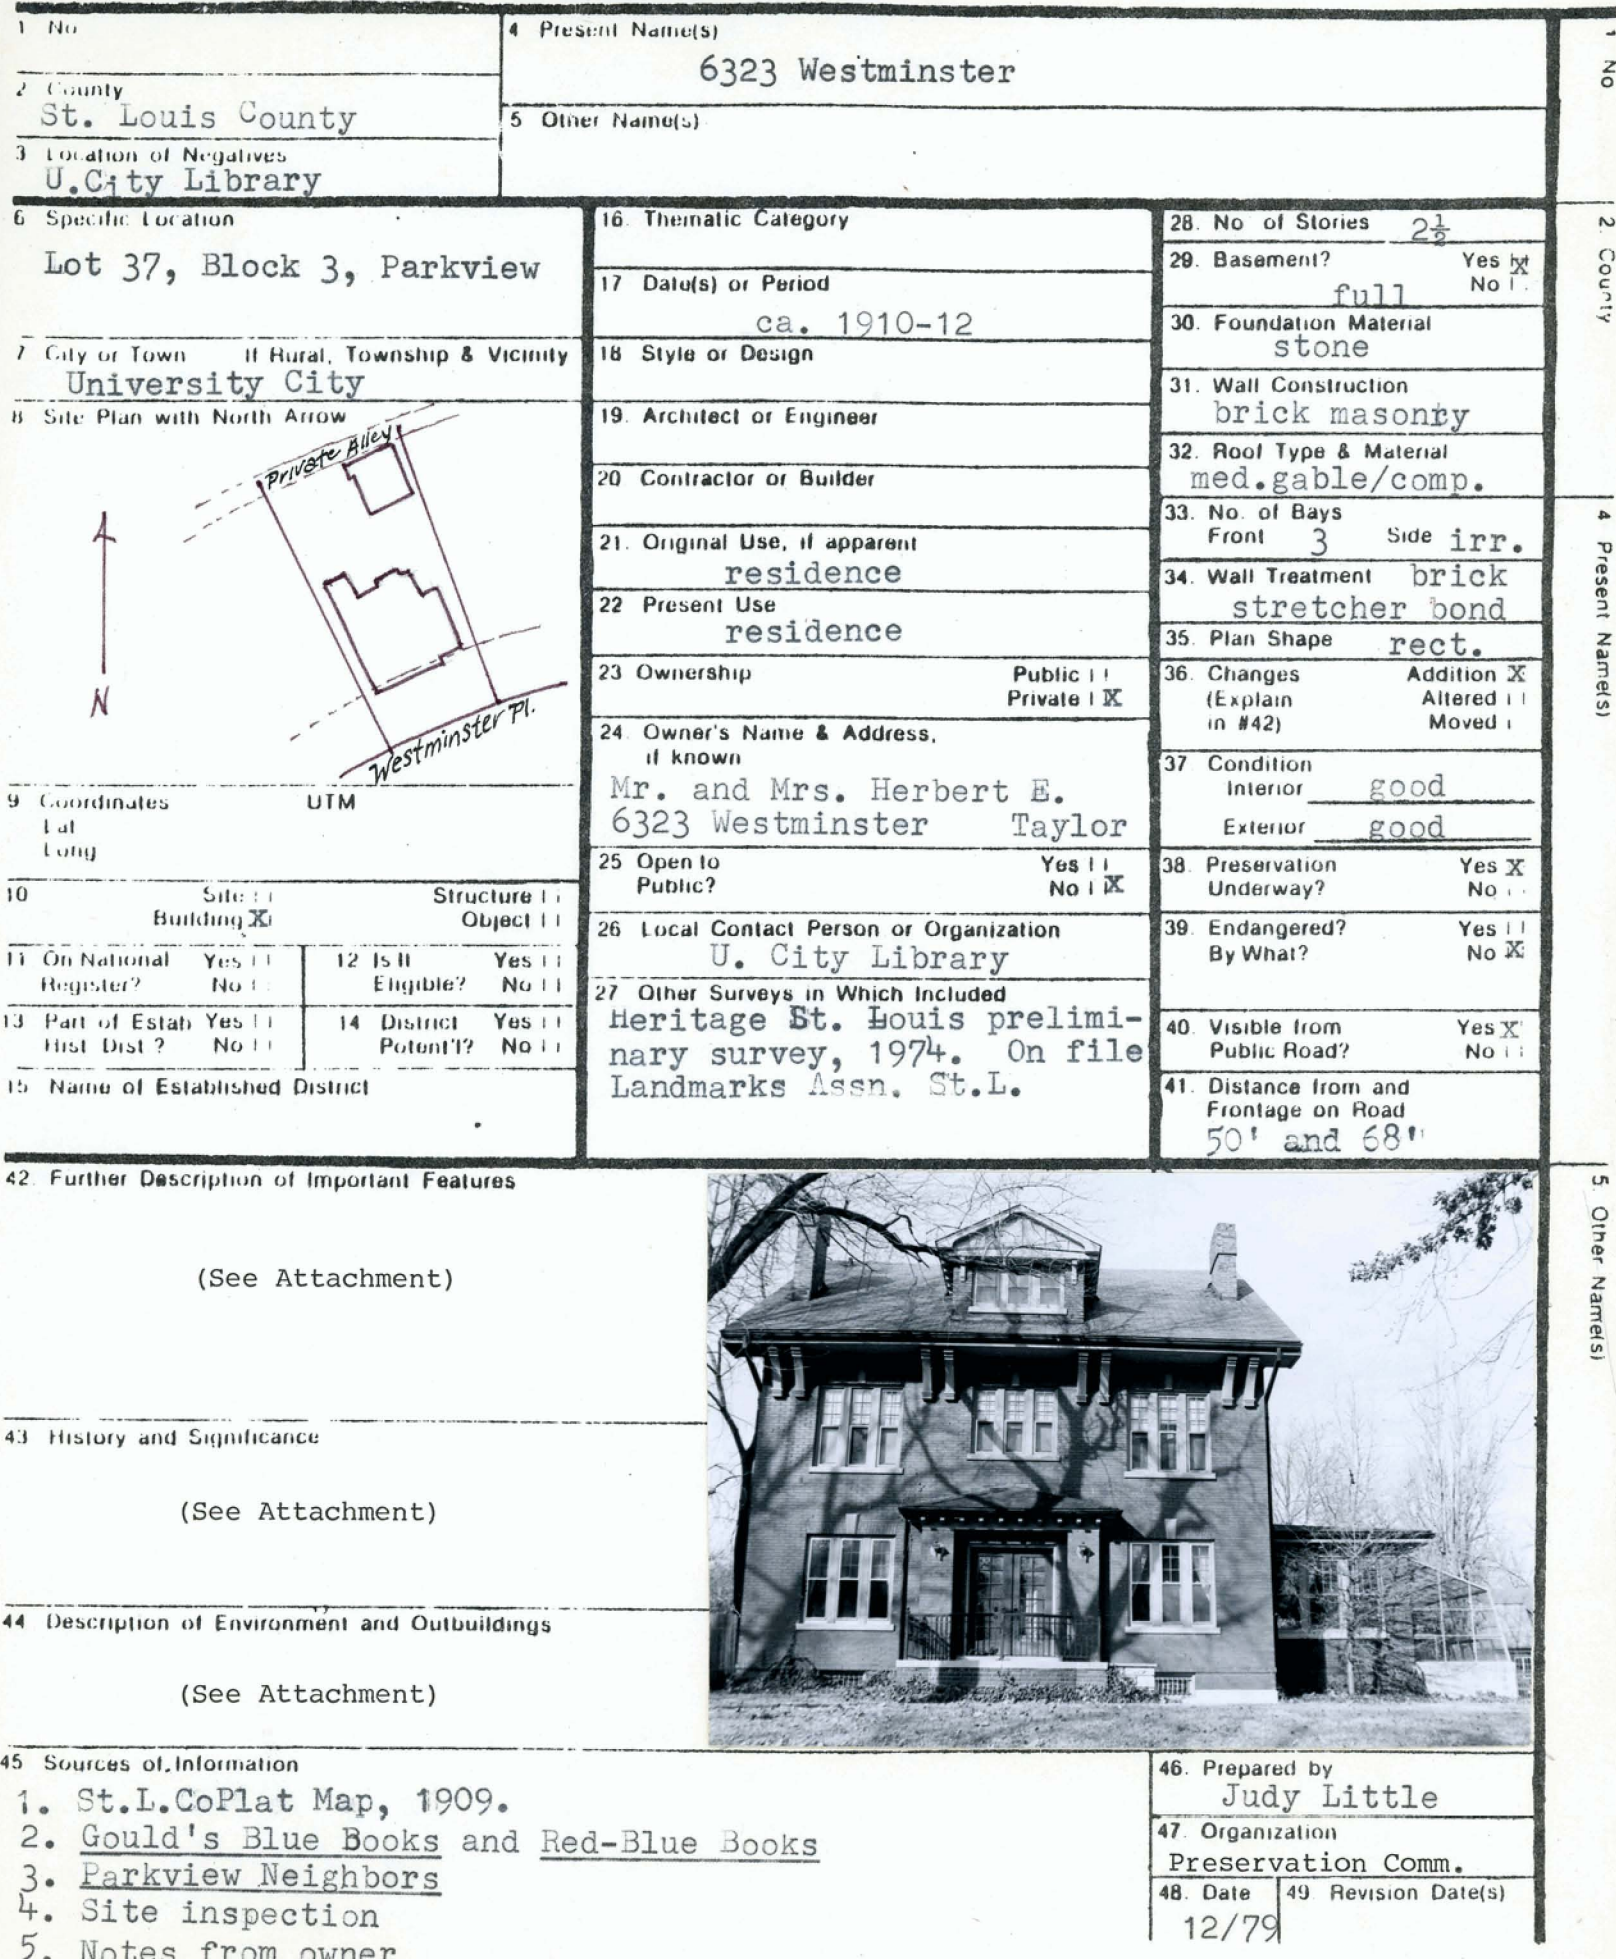 1 No
4 Present Name(s)
6323 Westminster
2 County
St. Louis County
5 Other Name(s)
3 Location of Negatives
U.City Library
6 Specific Location
Lot 37, Block 3, Parkview
7 City or Town If Rural, Township & Vicinity
University City
8 Site Plan with North Arrow
Private Alley
N
Westminster Pl.
9 Coordinates UTM
Lat
Long
10 Site Structure
Building X Object
11 On National Register? Yes No
12 Is It Eligible? Yes No
13 Part of Estab Hist Dist? Yes No
14 District Potent'l? Yes No
15 Name of Established District
16. Thematic Category
17 Date(s) or Period
ca. 1910-12
18 Style or Design
19. Architect or Engineer
20 Contractor or Builder
21. Original Use, if apparent
residence
22 Present Use
residence
23 Ownership Public
Private X
24. Owner's Name & Address,
if known
Mr. and Mrs. Herbert E.
6323 Westminster Taylor
25 Open to Yes
Public? No X
26 Local Contact Person or Organization
U. City Library
27 Other Surveys in Which Included
Heritage St. Louis prelimi-
nary survey, 1974. On file
Landmarks Assn. St.L.
28. No of Stories 2½
29. Basement? Yes X
full No
30. Foundation Material
stone
31. Wall Construction
brick masonry
32. Roof Type & Material
med.gable/comp.
33. No. of Bays
Front 3 Side irr.
34. Wall Treatment brick
stretcher bond
35. Plan Shape rect.
36. Changes Addition X
(Explain Altered
in #42) Moved
37 Condition
Interior good
Exterior good
38. Preservation Yes X
Underway? No
39. Endangered? Yes
By What? No X
40. Visible from Yes X
Public Road? No
41. Distance from and
Frontage on Road
50' and 68'
42. Further Description of Important Features
(See Attachment)
43 History and Significance
(See Attachment)
44 Description of Environment and Outbuildings
(See Attachment)
45 Sources of Information
1. St.L.CoPlat Map, 1909.
2. Gould's Blue Books and Red-Blue Books
3. Parkview Neighbors
4. Site inspection
5. Notes from owner
46. Prepared by
Judy Little
47. Organization
Preservation Comm.
48. Date 49 Revision Date(s)
12/79
1 No
2. County
4 Present Name(s)
5. Other Name(s)